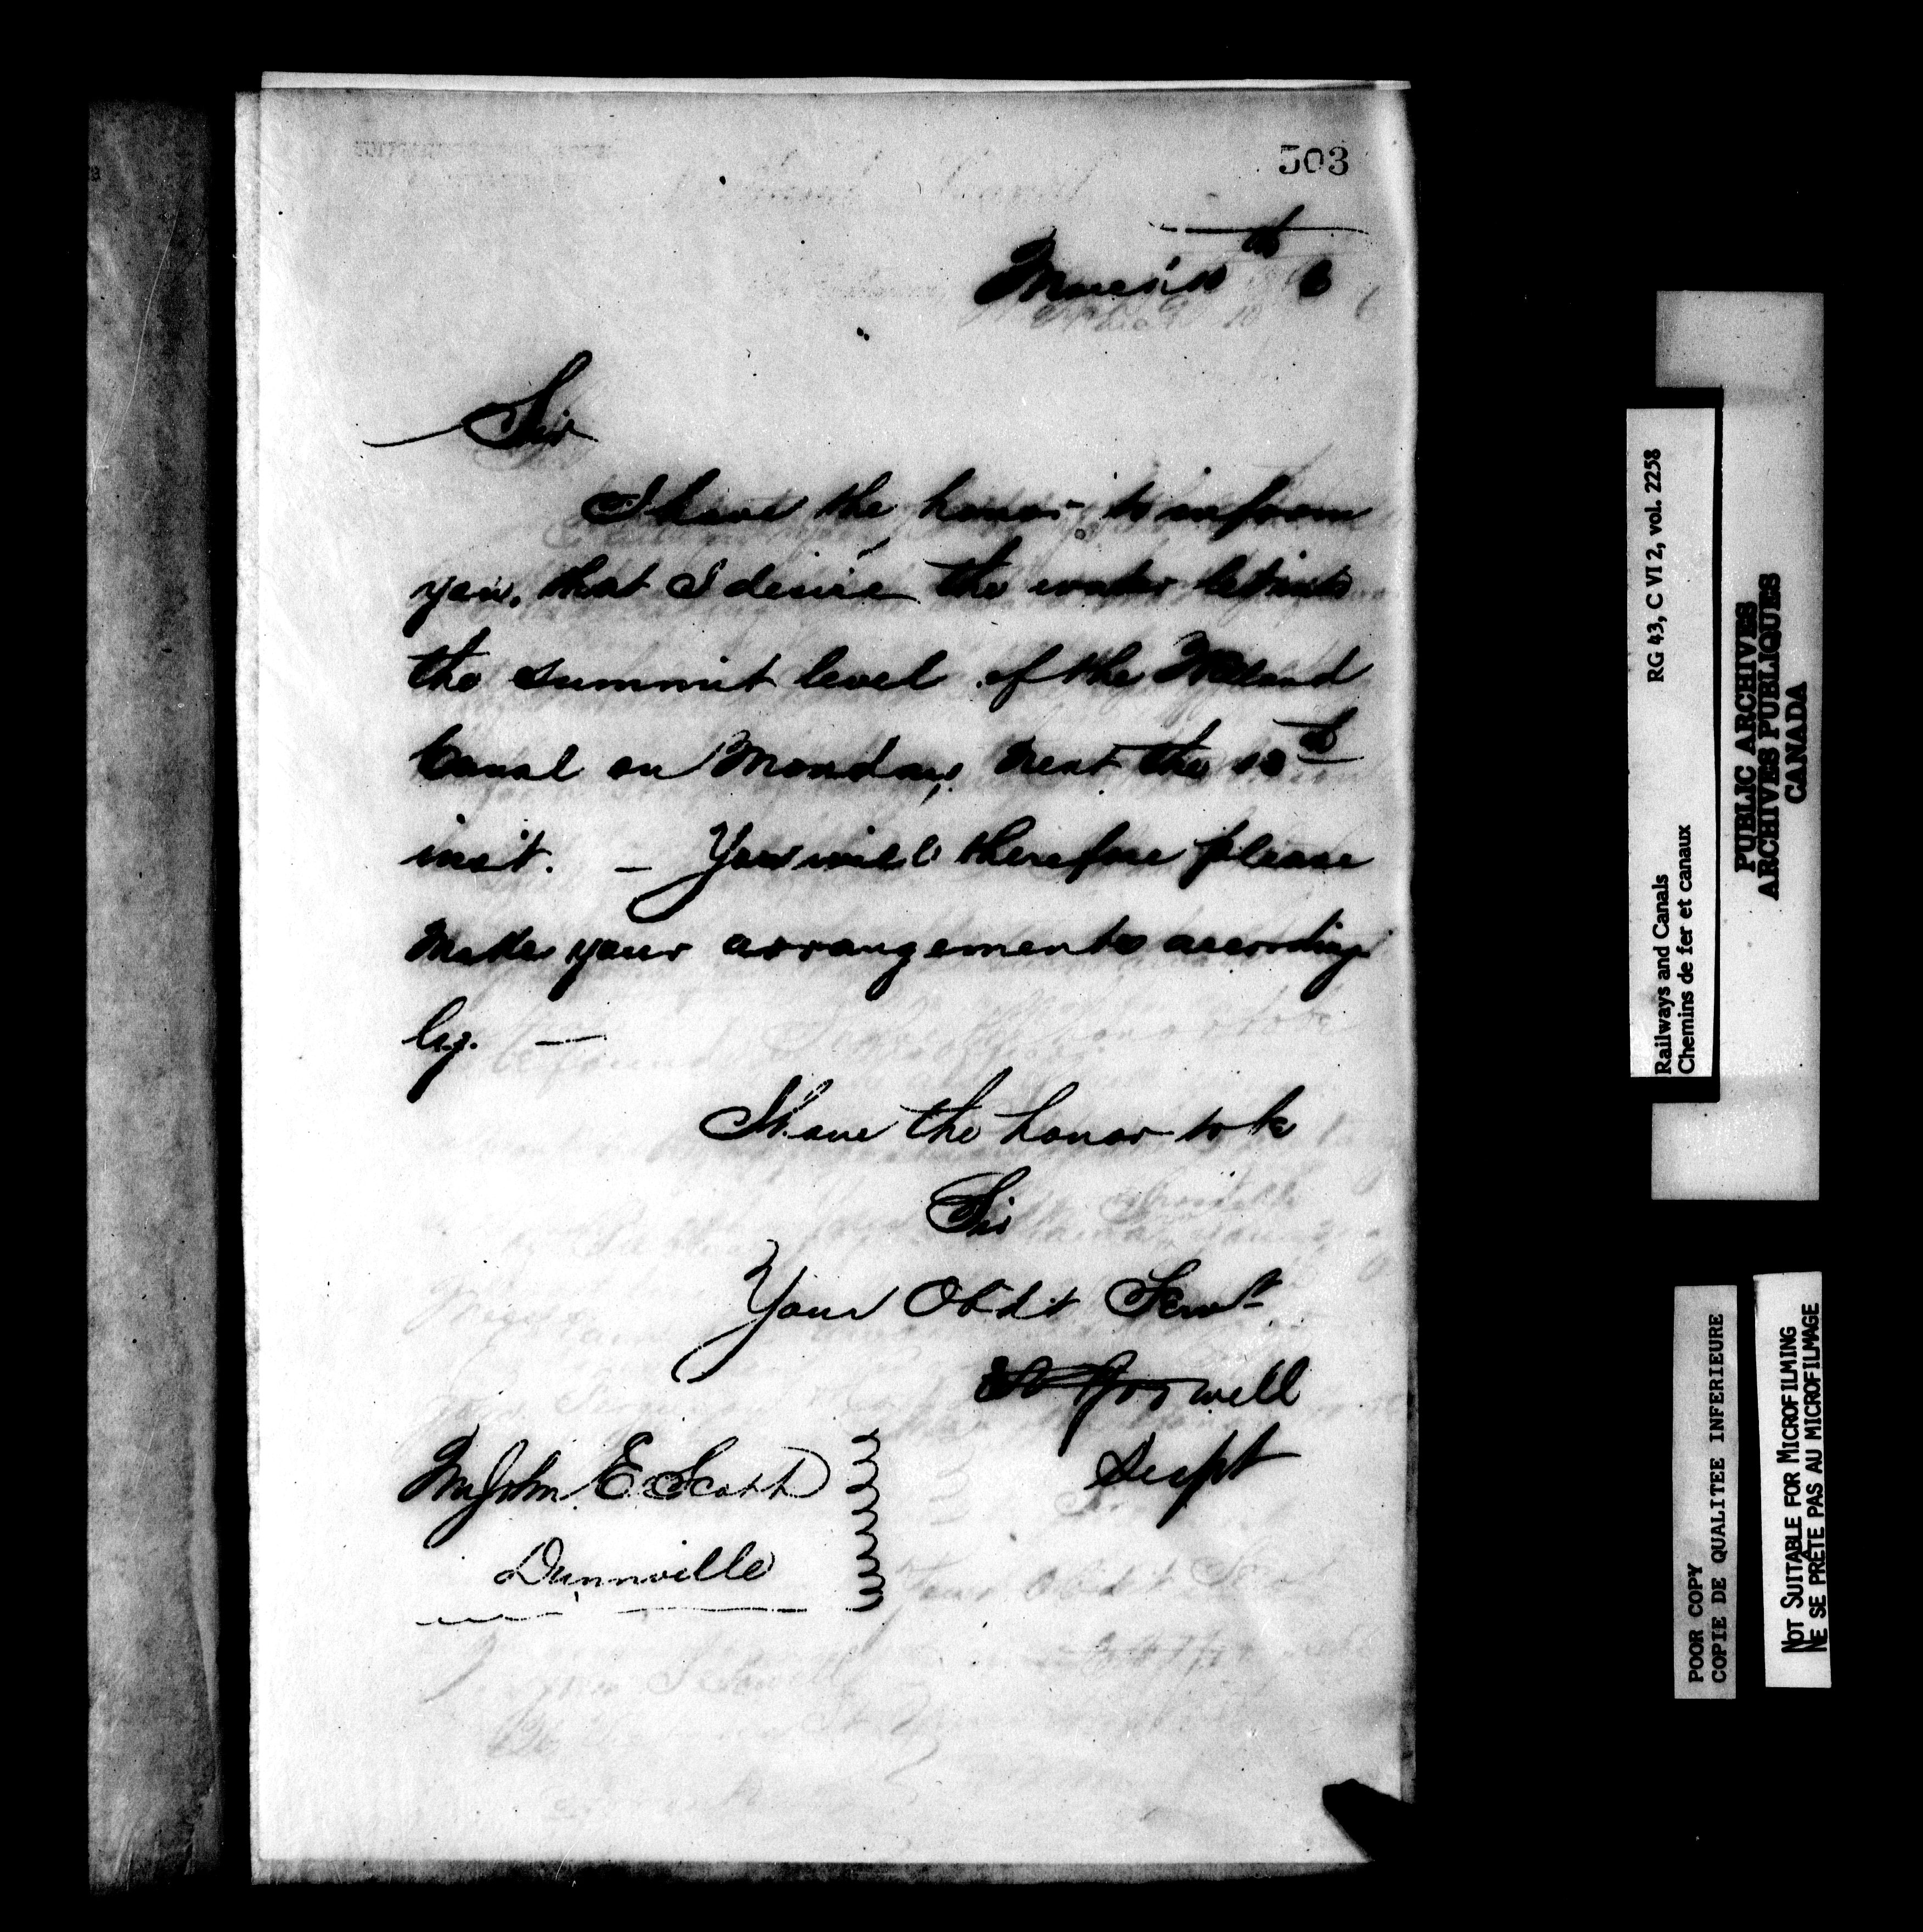 503
March 10th 6
Sir
I have the honor to inform
you, that I desire the water let into
the summit level of the Welland
Canal on Monday next the 13th
inst. — You will therefore please
make your arrangements according
ly. —
I have the honor to be
Sir
Your Obdt Servt
well
Supt
Mr John E. Scott
Dunnville
Railways and Canals RG 43, C VI 2, vol. 2258
Chemins de fer et canaux
PUBLIC ARCHIVES
ARCHIVES PUBLIQUES
CANADA
POOR COPY
COPIE DE QUALITEE INFERIEURE
NOT SUITABLE FOR MICROFILMING
NE SE PRÊTE PAS AU MICROFILMAGE